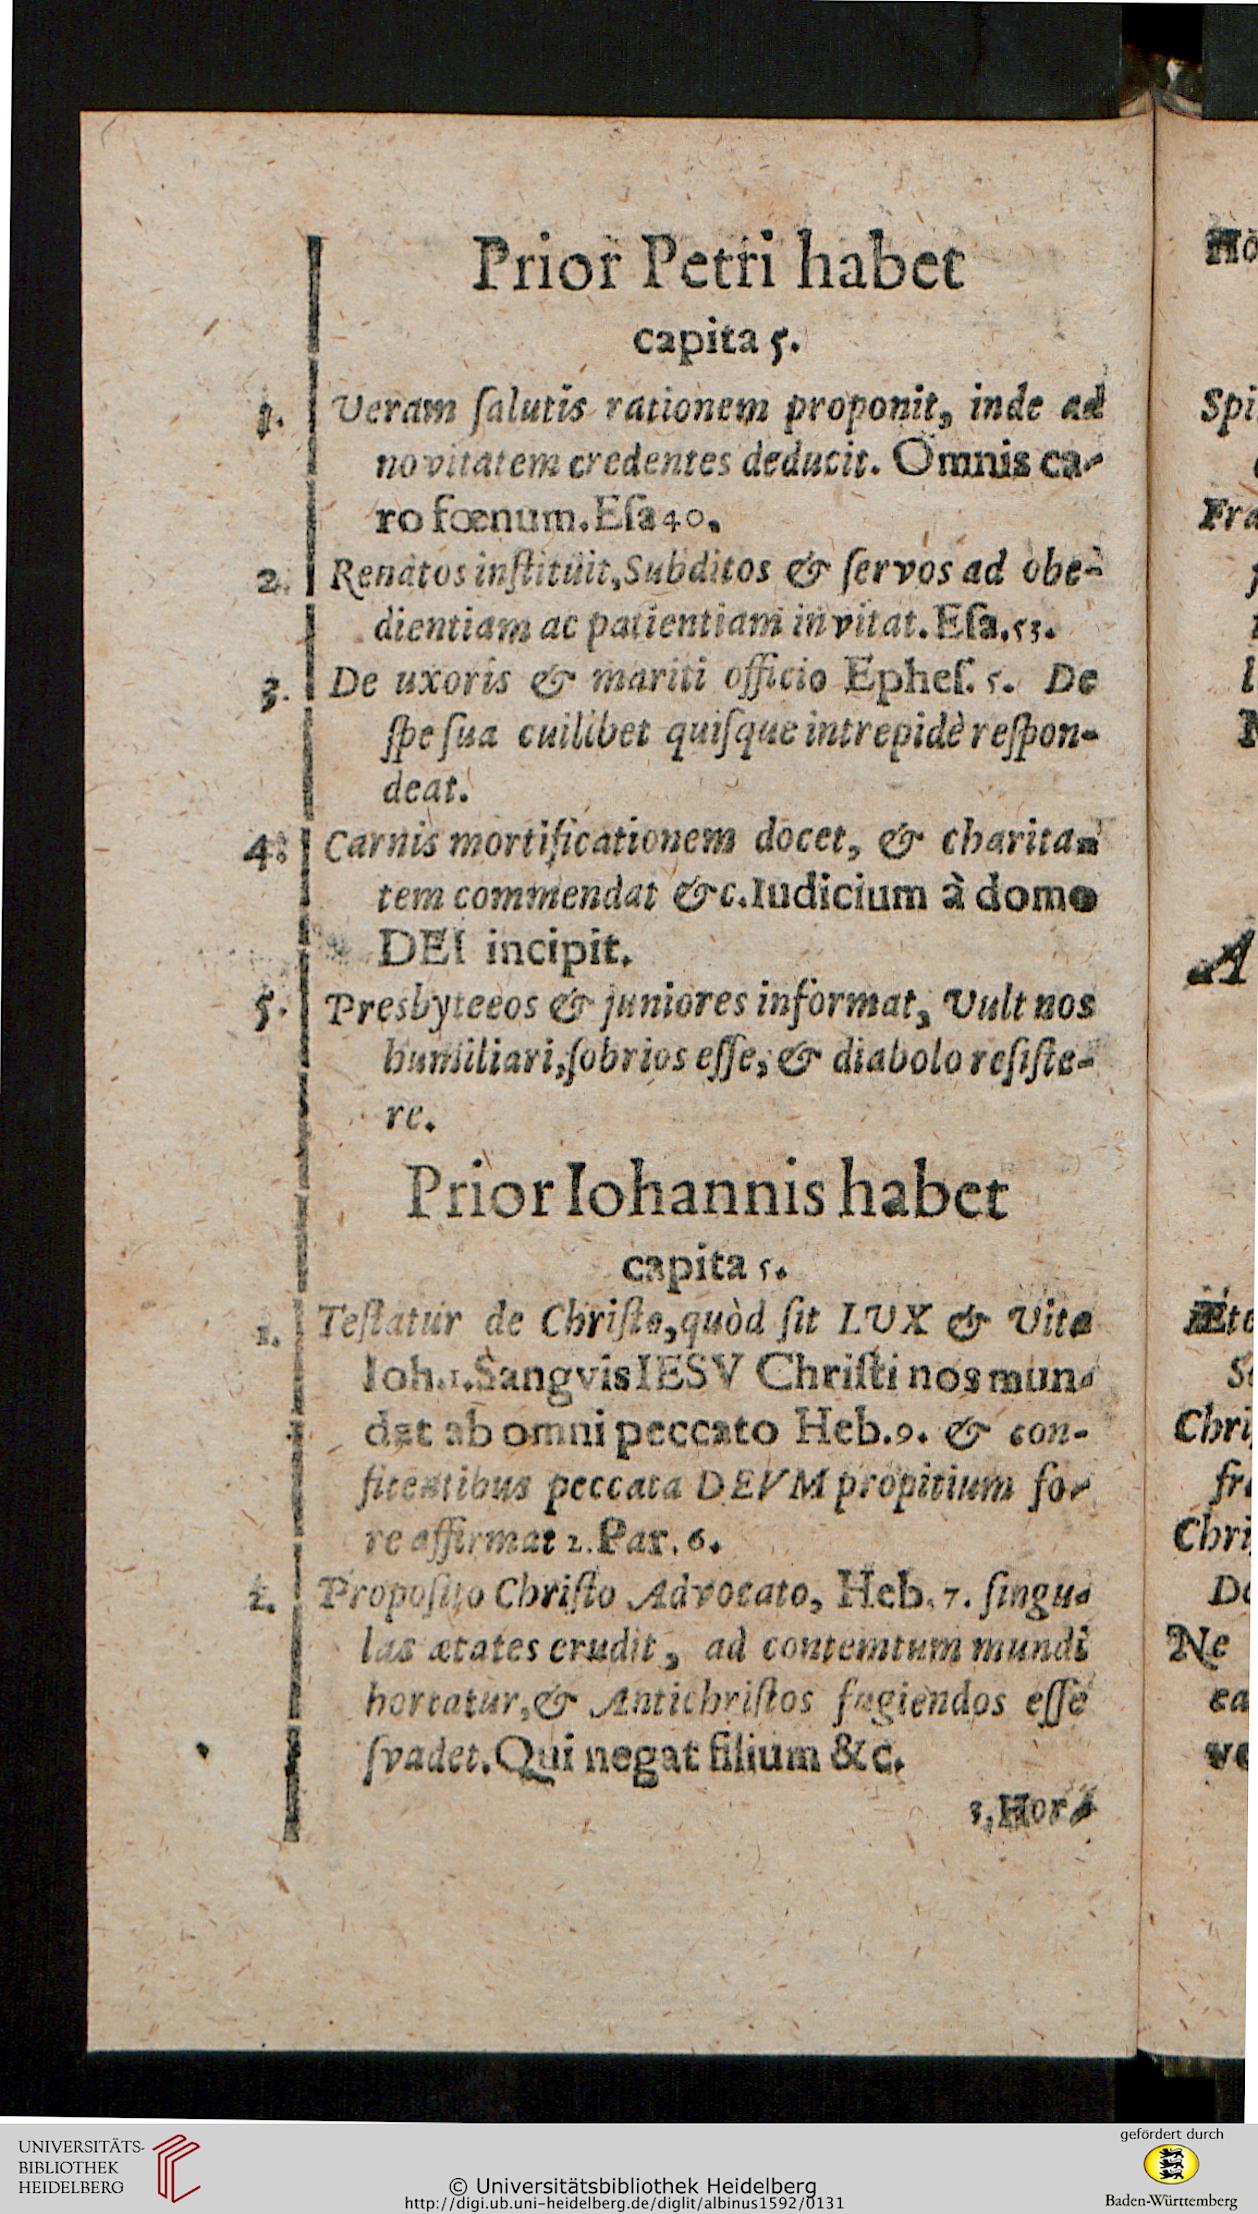 Prior Petri habet
capita 5.
1. Veram ſalutis rationem proponit, inde ad
novitatem credentes deducit. Omnis ca-
ro fœnum. Eſa 40.
2. Renatos inſtituit, Subditos & ſervos ad obe-
dientiam ac patientiam invitat. Eſa. 53.
3. De uxoris & mariti officio Epheſ. 5. De
ſpe ſua cuilibet quiſque intrepidè reſpon-
deat.
4. Carnis mortificationem docet, & charita-
tem commendat &c. Iudicium à domo
DEI incipit.
5. Presbyteeos & juniores informat, Vult nos
humiliari, ſobrios eſſe, & diabolo reſiſte-
re.
Prior Iohannis habet
capita 5.
1. Teſtatur de Chriſto, quòd ſit LUX & Vita
Ioh. 1. Sangvis IESV Chriſti nos mun-
dat ab omni peccato Heb. 9. & con-
fitentibus peccata DEVM propitium fo-
re affirmat 2. Par. 6.
2. Propoſito Chriſto Advocato, Heb. 7. ſingu-
las ætates erudit, ad contemtum mundi
hortatur, & Antichriſtos fugiendos eſſe
ſvadet. Qui negat filium &c.
3, Hor-
Spi
Fra
A
Chri
Chri
Ne
ea
UNIVERSITÄTS-
BIBLIOTHEK
HEIDELBERG
© Universitätsbibliothek Heidelberg
http://digi.ub.uni-heidelberg.de/diglit/albinus1592/0131
gefördert durch
Baden-Württemberg